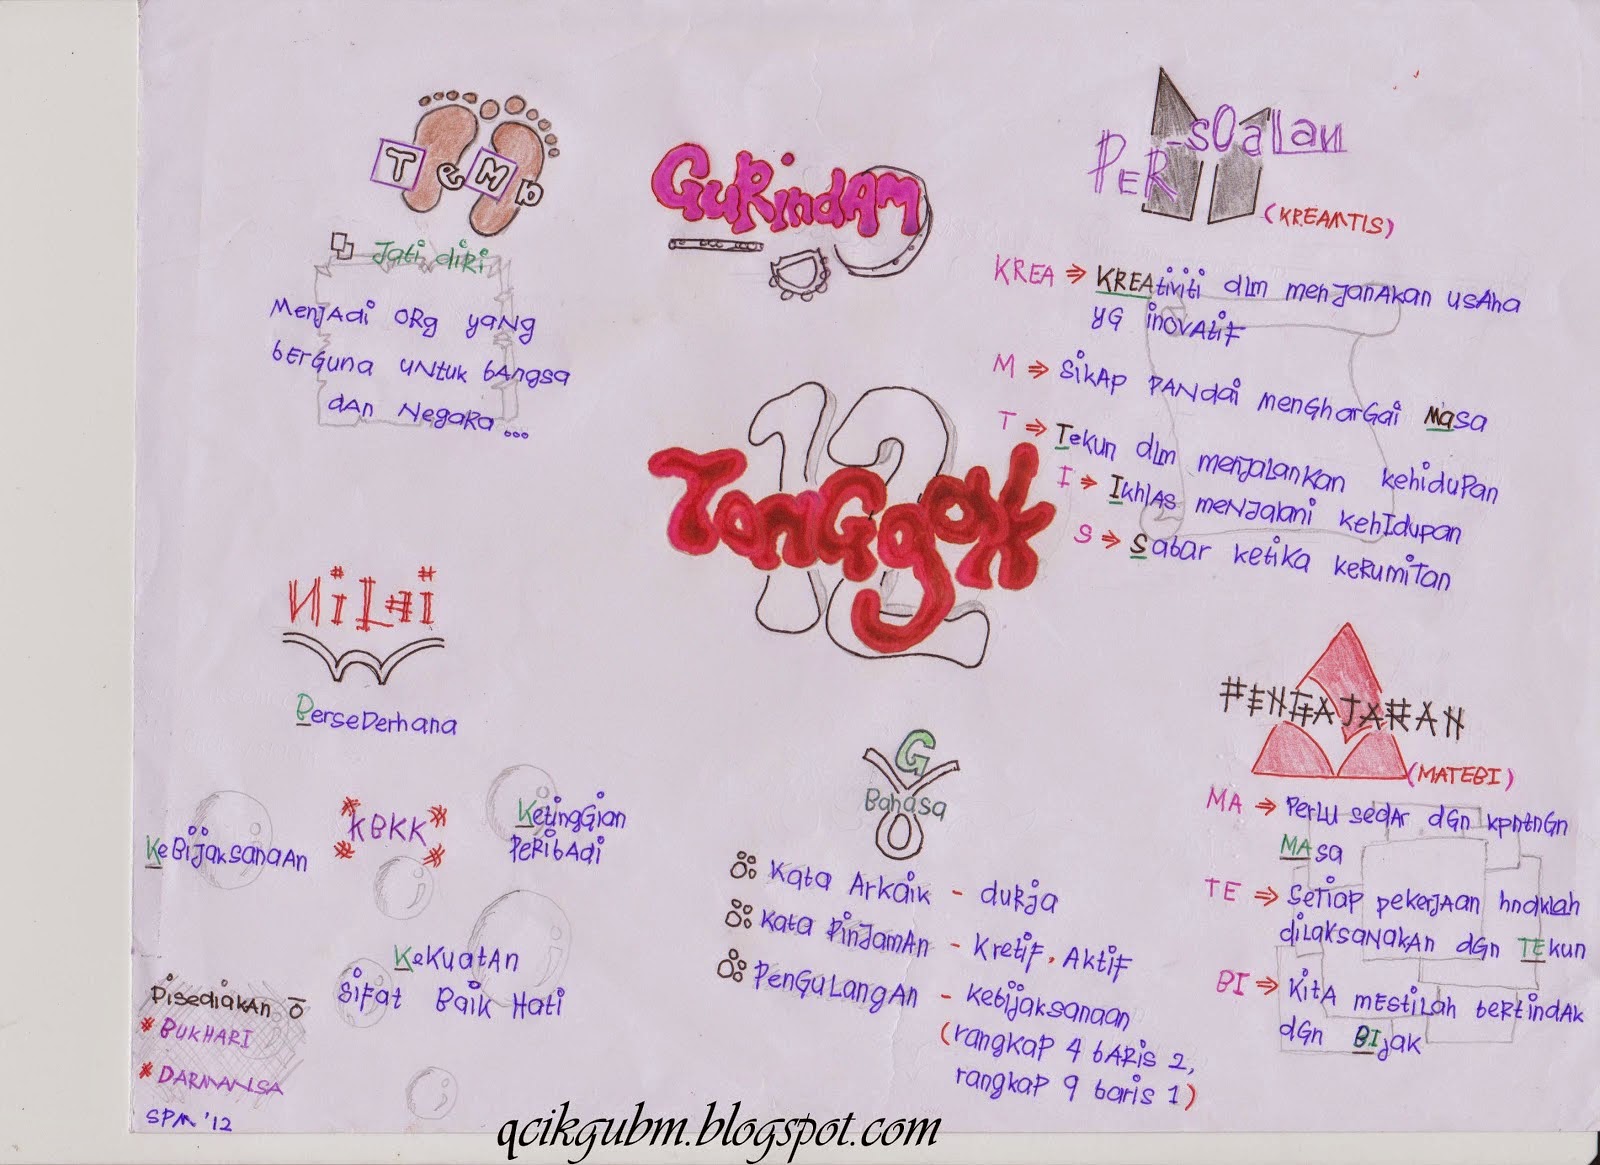 TeMa
Jati diRi
MenJAdi ORg yaNg
bErguna uNtuk bAngsa
dAn NegaRa...
GuRindAM
12
TonGgak
PER-sOaLan
(KREAMTIS)
KREA ⇒ KREAtiviti dlm menJanAkan usAha
yG inovAtiF
M ⇒ SikAp PANdai menGharGai Masa
T ⇒ Tekun dlm menjalanKan kehiduPan
I ⇒ IkhlAs meNJalani kehIdupan
S ⇒ Sabar ketiKa keRumiTan
NiLai
BerseDerhana
KeBijaKsanaAn
KBKK
KetingGian
PeRibAdi
KeKuatAn
SiFat Baik Hati
G
Bahasa
Kata Arkaik - duRja
Kata PinJamAn - KretiF, AktiF
PenGuLangAn - Kebijaksanaan
(rangkaP 4 bARis 2,
rangkap 9 baris 1)
PENGAJARAN
(MATEBI)
MA ⇒ PerLu sedAr dGn kpntnGn
MAsa
TE ⇒ SeTiap pekerJAan hndklah
diLakSaNakAn dGn TEkun
BI ⇒ KitA mEstiLah bERtindAk
dGn BIjak
Disediakan ō
* BUKHARI
* DARMANSA
SPM '12
qcikgubm.blogspot.com